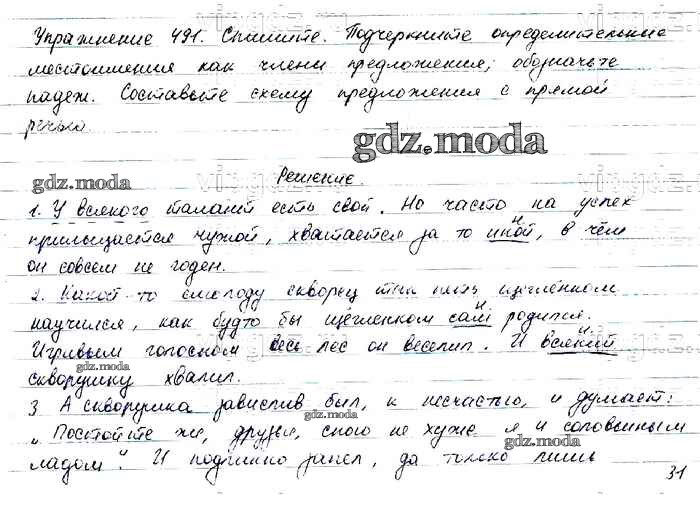 Упражнение 491. Спишите. Подчеркните определительные
местоимения как члены предложения, обозначьте
падеж. Составьте схему предложения с прямой
речью.
gdz.moda
Решение.
gdz.moda
1. У всякого талант есть свой. Но часто на успех
прильщается чужой, хватается за то иной, в чём
он совсем не годен.
2. Какой-то смолоду скворец так петь щеглёнком
научился, как будто бы щегленком сам родился.
Игривым голоском весь лес он веселил. И всякий
gdz.moda
скворушку хвалил.
3 А скворушка завислив был, к несчастью, и думает:
gdz.moda
„Постойте же, друзья, спою не хуже я и соловьиным
ладом". И подлинно запел, да только лишь
gdz.moda
31